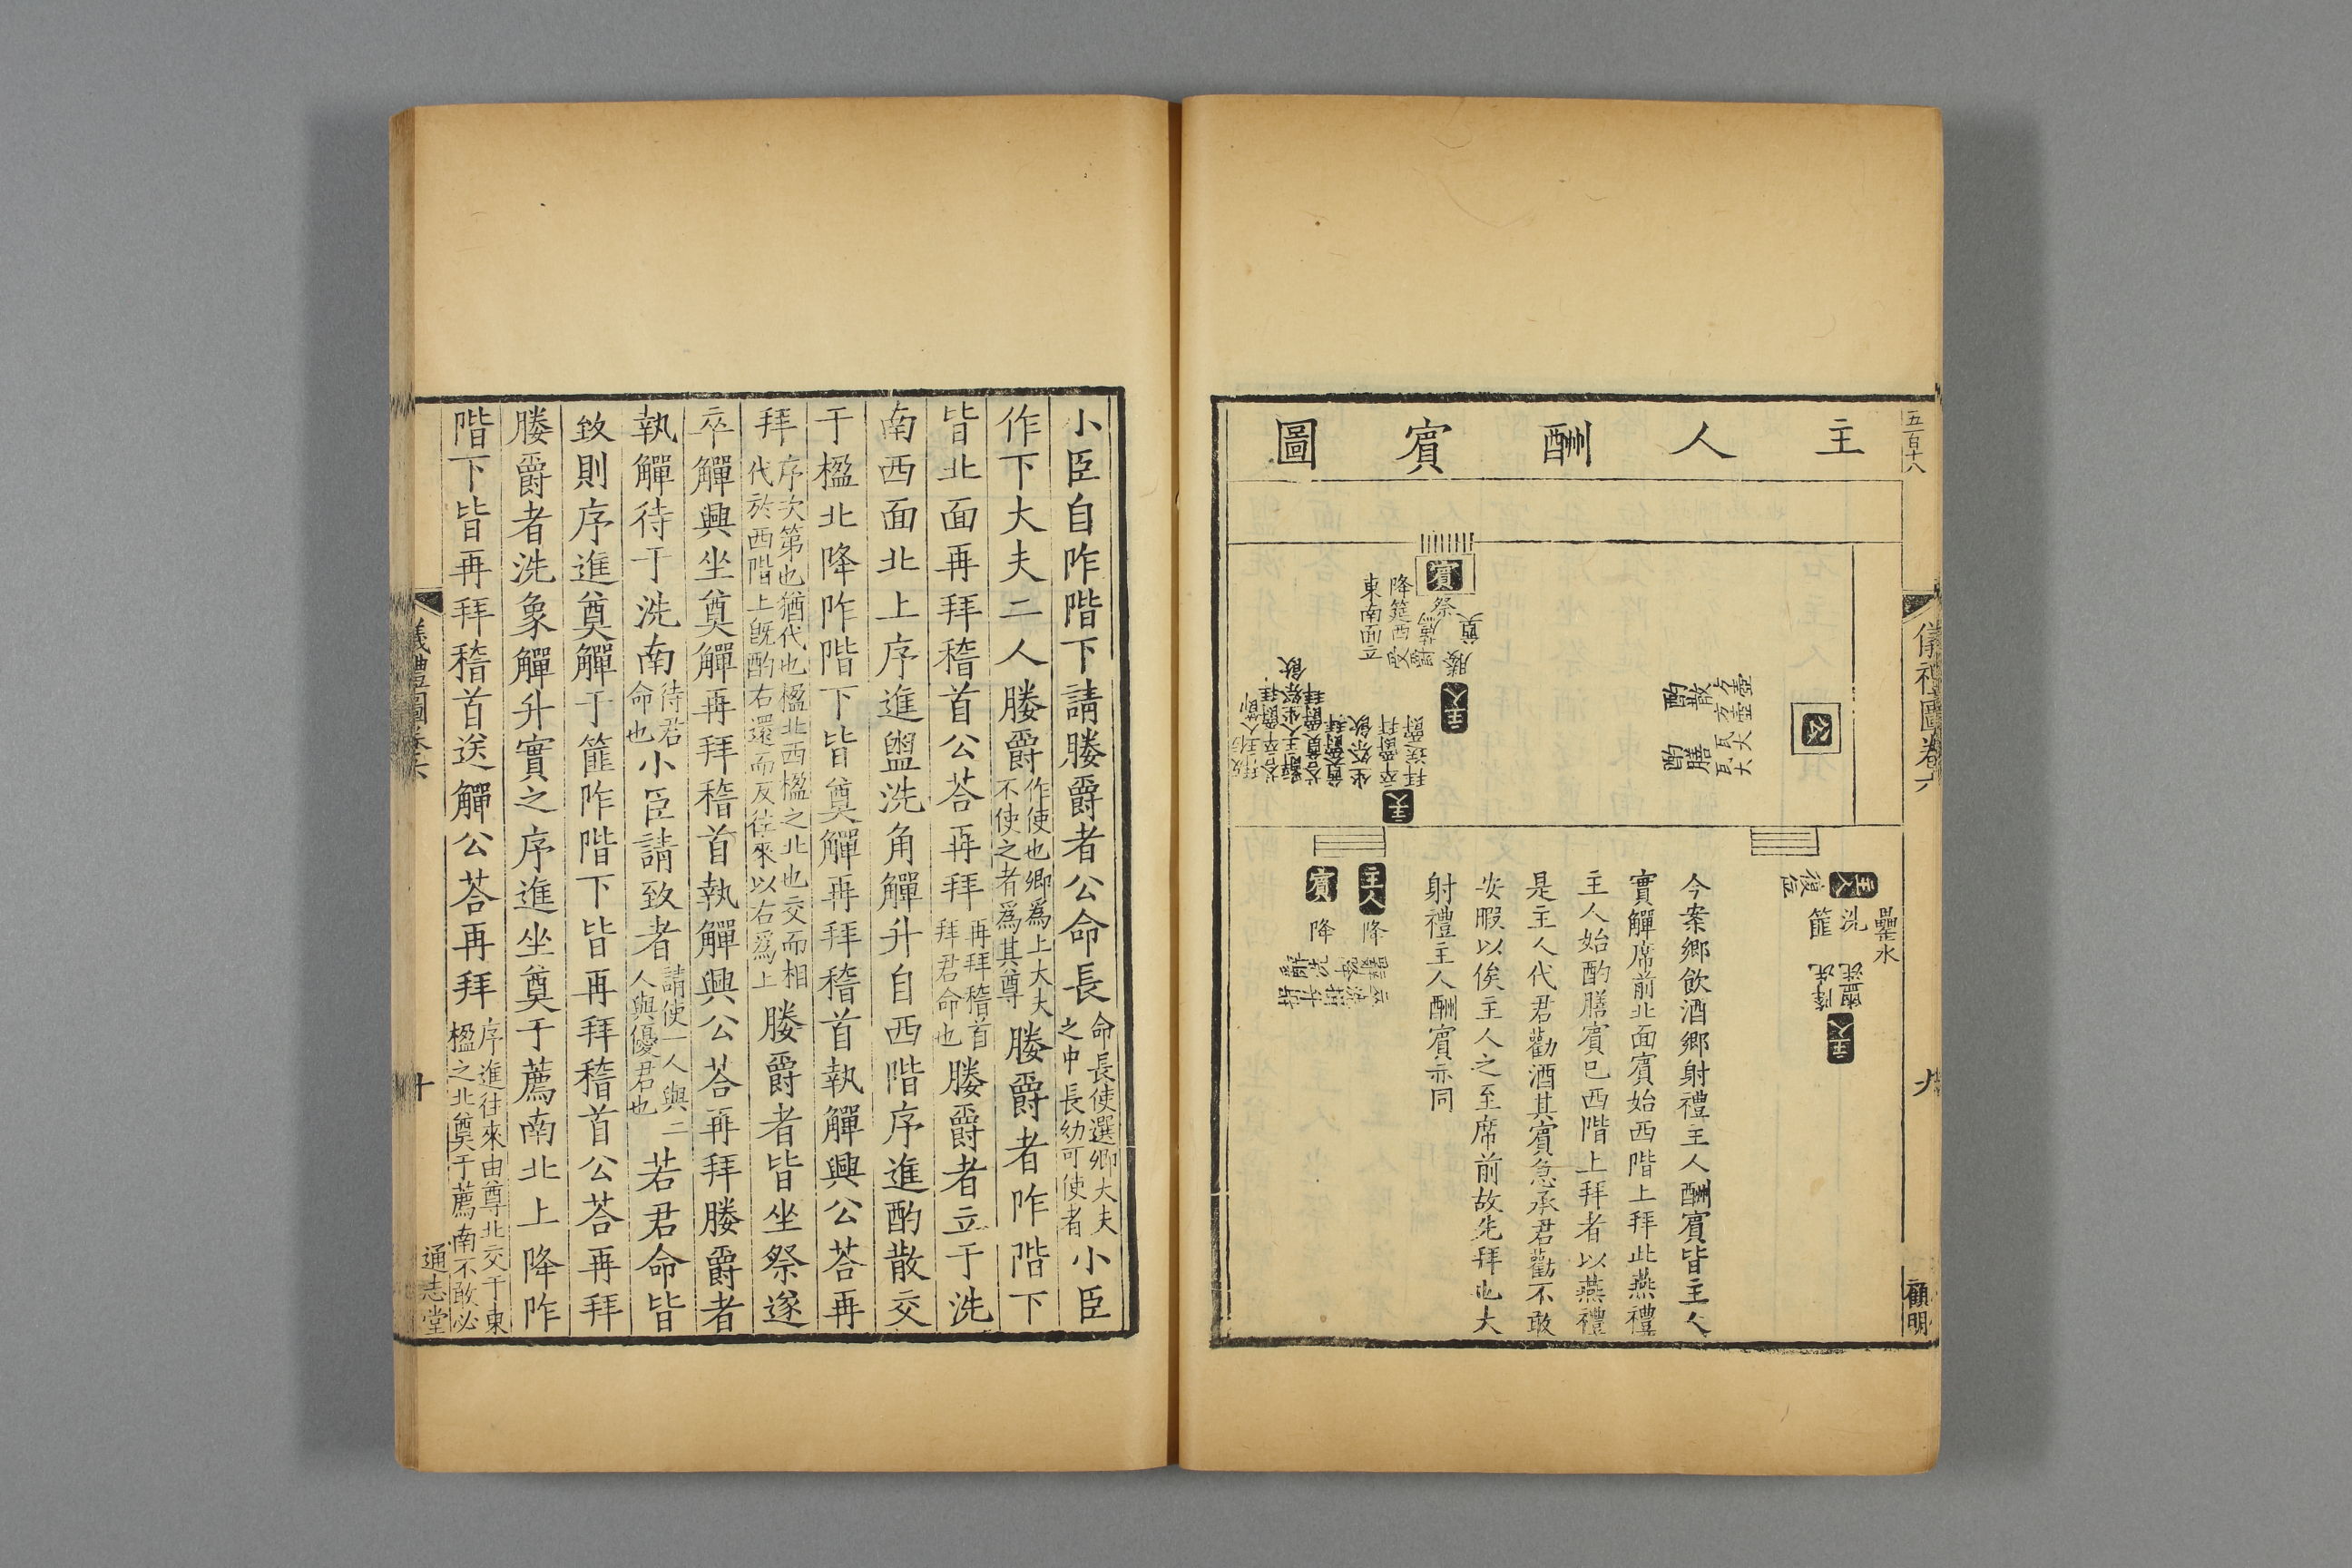 五百十八
儀禮圖卷六
九
顧明
主人酬賓圖
賓
祭薦
奠
降筵西
東南面立
主人
公
酌散
方壺
酌膳
瓦大
瓦大
卒爵拜
拜送爵
主人
復位
罍水
洗
篚
盥洗
降洗
主人
主人
降
賓
降
今案鄉飲酒鄉射禮主人酬賓皆主人
實觶席前北面賓始西階上拜此燕禮
主人始酌膳賓已西階上拜者以燕禮
是主人代君勸酒其賓急承君勸不敢
安暇以俟主人之至席前故先拜也大
射禮主人酬賓亦同
小臣自阼階下請媵爵者公命長命長使選卿大夫之中長幼可使者小臣
作下大夫二人媵爵作使也卿為上大夫不使之者為其尊媵爵者阼階下
皆北面再拜稽首公荅再拜再拜稽首拜君命也媵爵者立于洗
南西面北上序進盥洗角觶升自西階序進酌散交
于楹北降阼階下皆奠觶再拜稽首執觶興公荅再
拜序次第也猶代也楹北西楹之北也交而相代於西階上旣酌右還而反往來以右為上媵爵者皆坐祭遂
卒觶興坐奠觶再拜稽首執觶興公荅再拜媵爵者
執觶待于洗南待君命也小臣請致者請使一人與二人與優君也若君命皆
致則序進奠觶于篚阼階下皆再拜稽首公荅再拜
媵爵者洗象觶升實之序進坐奠于薦南北上降阼
階下皆再拜稽首送觶公荅再拜序進往來由尊北交于東楹之北奠于薦南不敢必
儀禮圖卷六
十
通志堂